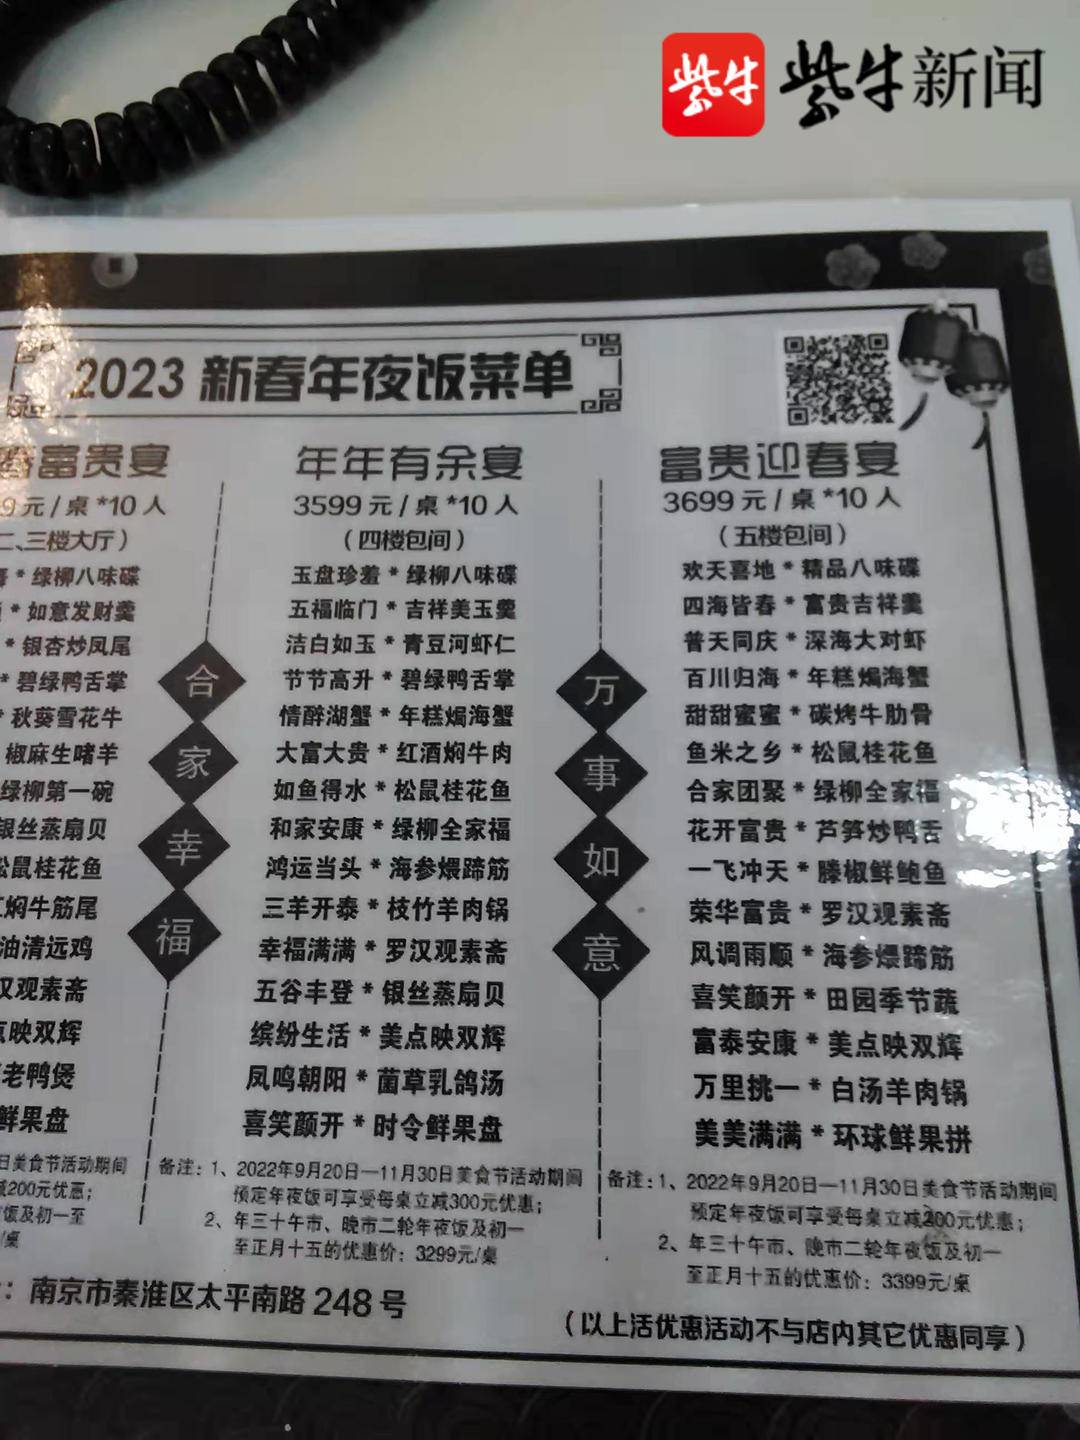 紫牛
紫牛新闻
2023 新春年夜饭菜单
富贵宴
9元/桌*10人
二、三楼大厅）
* 绿柳八味碟
* 如意发财羹
* 银杏炒凤尾
* 碧绿鸭舌掌
* 秋葵雪花牛
椒麻生啫羊
绿柳第一碗
银丝蒸扇贝
松鼠桂花鱼
焖牛筋尾
油清远鸡
汉观素斋
点映双辉
老鸭煲
鲜果盘
日美食节活动期间
减200元优惠；
夜饭及初一至
/桌
合家幸福
年年有余宴
3599元/桌*10人
（四楼包间）
玉盘珍羞 * 绿柳八味碟
五福临门 * 吉祥美玉羹
洁白如玉 * 青豆河虾仁
节节高升 * 碧绿鸭舌掌
情醉湖蟹 * 年糕焗海蟹
大富大贵 * 红酒焖牛肉
如鱼得水 * 松鼠桂花鱼
和家安康 * 绿柳全家福
鸿运当头 * 海参煨蹄筋
三羊开泰 * 枝竹羊肉锅
幸福满满 * 罗汉观素斋
五谷丰登 * 银丝蒸扇贝
缤纷生活 * 美点映双辉
凤鸣朝阳 * 菌草乳鸽汤
喜笑颜开 * 时令鲜果盘
备注：1、2022年9月20日—11月30日美食节活动期间
预定年夜饭可享受每桌立减300元优惠；
2、年三十午市、晚市二轮年夜饭及初一
至正月十五的优惠价：3299元/桌
万事如意
富贵迎春宴
3699元/桌*10人
（五楼包间）
欢天喜地 * 精品八味碟
四海皆春 * 富贵吉祥羹
普天同庆 * 深海大对虾
百川归海 * 年糕焗海蟹
甜甜蜜蜜 * 碳烤牛肋骨
鱼米之乡 * 松鼠桂花鱼
合家团聚 * 绿柳全家福
花开富贵 * 芦笋炒鸭舌
一飞冲天 * 滕椒鲜鲍鱼
荣华富贵 * 罗汉观素斋
风调雨顺 * 海参煨蹄筋
喜笑颜开 * 田园季节蔬
富泰安康 * 美点映双辉
万里挑一 * 白汤羊肉锅
美美满满 * 环球鲜果拼
备注：1、2022年9月20日—11月30日美食节活动期间
预定年夜饭可享受每桌立减200元优惠；
2、年三十午市、晚市二轮年夜饭及初一
至正月十五的优惠价：3399元/桌
：南京市秦淮区太平南路 248 号
（以上活优惠活动不与店内其它优惠同享）